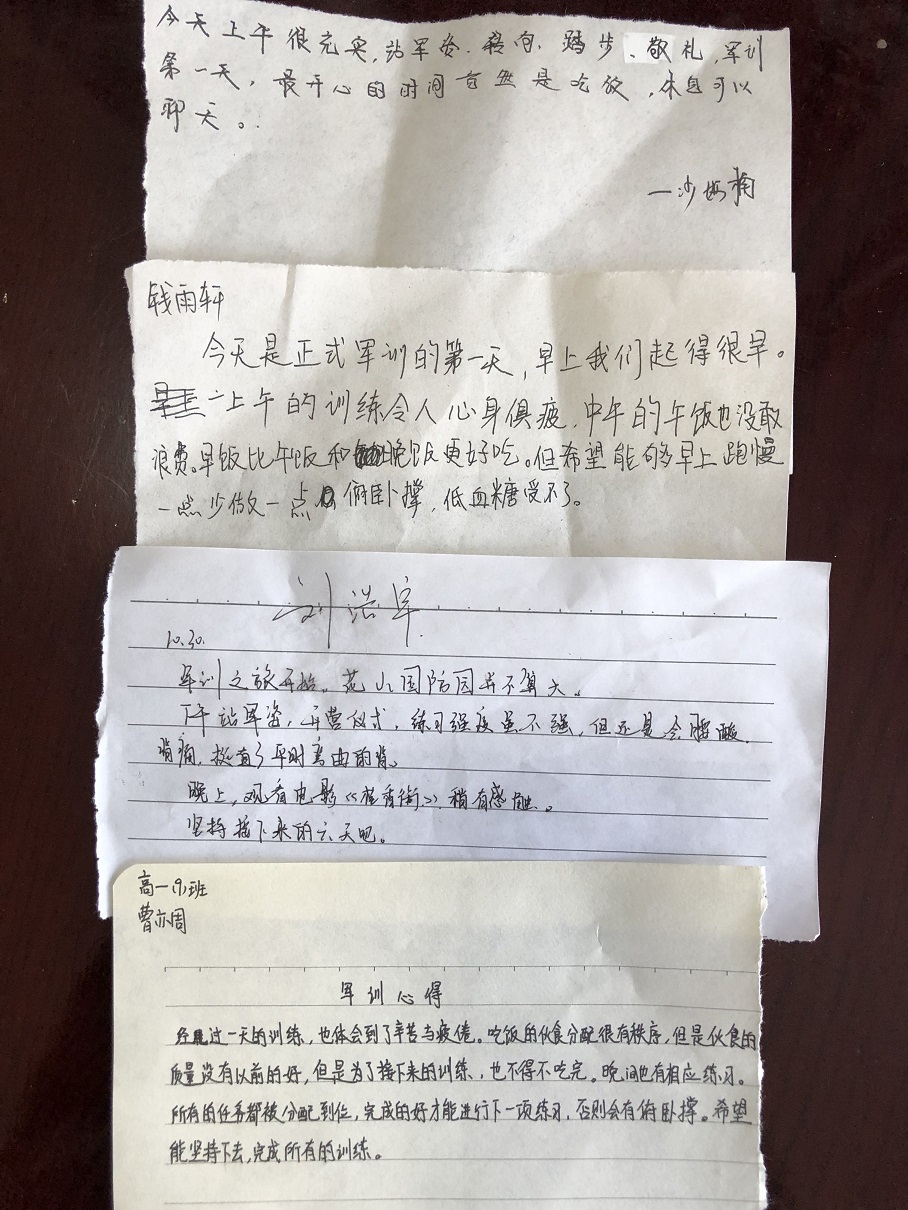 今天上午很充实,站军姿、转向、踏步、敬礼,军训
第一天,最开心的时间自然是吃饭,休息可以
聊天。
—沙楠
钱雨轩
今天是正式军训的第一天,早上我们起得很早。
一上午的训练令人心身俱疲,中午的午饭也没敢
浪费。早饭比午饭和晚饭更好吃。但希望能够早上跑慢
一点少做一点俯卧撑,低血糖受不了。
刘浩
10.30.
军训之旅开始。花山国防园并不算大。
下午站军姿,开营仪式,练习强度虽不强,但还是会腰酸
背痛,挺直了平时弯曲的背。
晚上,观看电影《》稍有感触。
坚持接下来的六天吧。
高一(9)班
曹亦周
军训心得
经过一天的训练,也体会到了辛苦与疲倦。吃饭的伙食分配很有秩序,但是伙食的
质量没有以前的好,但是为了接下来的训练,也不得不吃完。晚间也有相应练习。
所有的任务都被分配到位,完成的好才能进行下一项练习,否则会有俯卧撑。希望
能坚持下去,完成所有的训练。